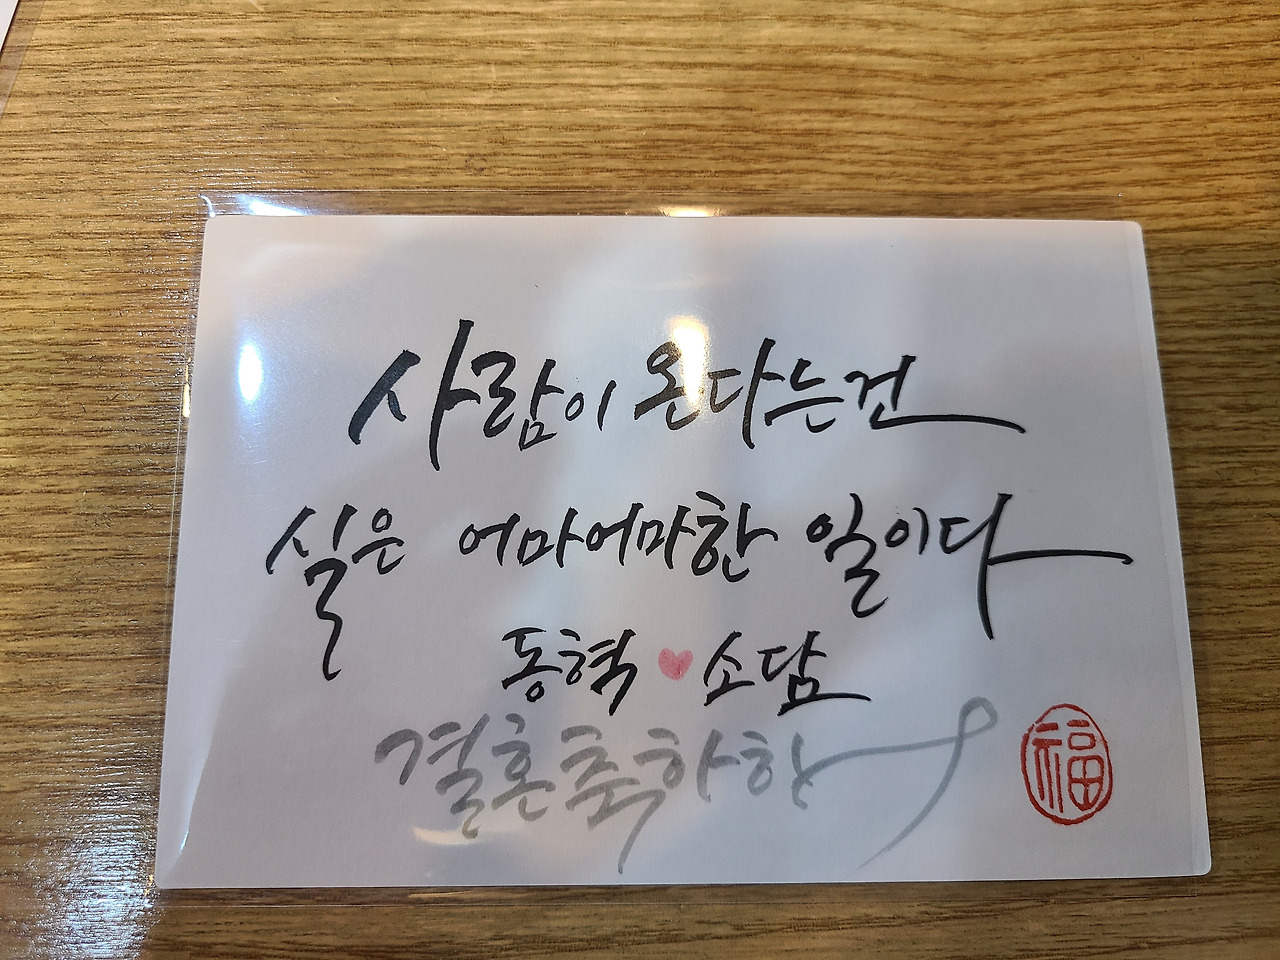 사람이 온다는건
실은 어마어마한 일이다
동혁 ♥ 소담
결혼축하해
福